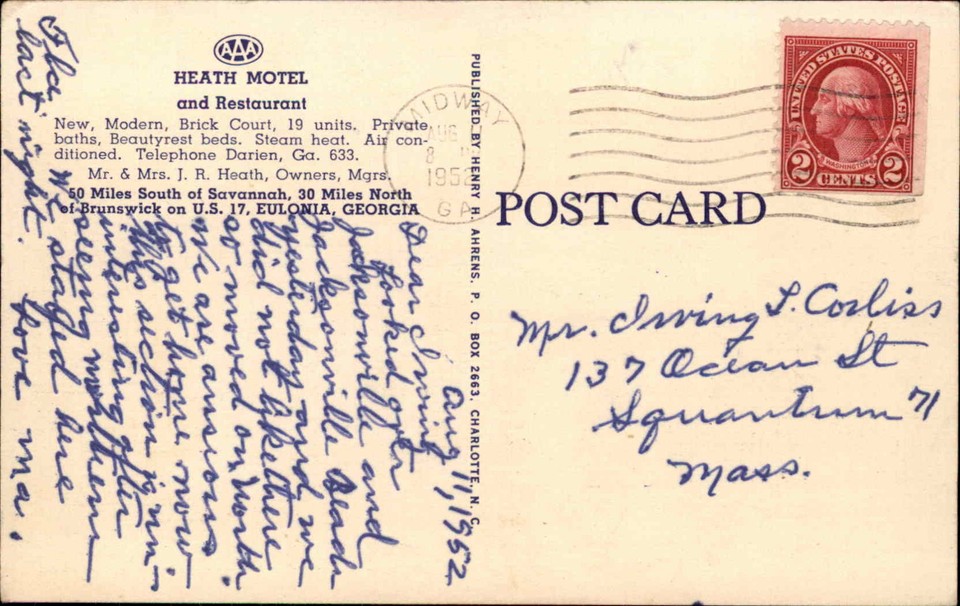 AAA
HEATH MOTEL
and Restaurant
New, Modern, Brick Court, 19 units. Private
baths, Beautyrest beds. Steam heat. Air con-
ditioned. Telephone Darien, Ga. 633.
Mr. & Mrs. J. R. Heath, Owners, Mgrs.
50 Miles South of Savannah, 30 Miles North
of Brunswick on U.S. 17, EULONIA, GEORGIA
Aug 11, 1952
Dear Irving
Looked over
Jacksonville and
Jacksonville Beach
yesterday and we
did not like there
so moved on north.
We are anxious
to get home now
this section is un-
interesting after
seeing northern
Fla. We stayed here
last night. Love Ma.
PUBLISHED BY HENRY H. AHRENS, P. O. BOX 2663, CHARLOTTE, N. C.
MIDWAY
AUG
1952
GA
UNITED STATES POSTAGE
WASHINGTON
2 CENTS 2
POST CARD
Mr. Irving L. Corliss
137 Ocean St
Squantum 71
Mass.